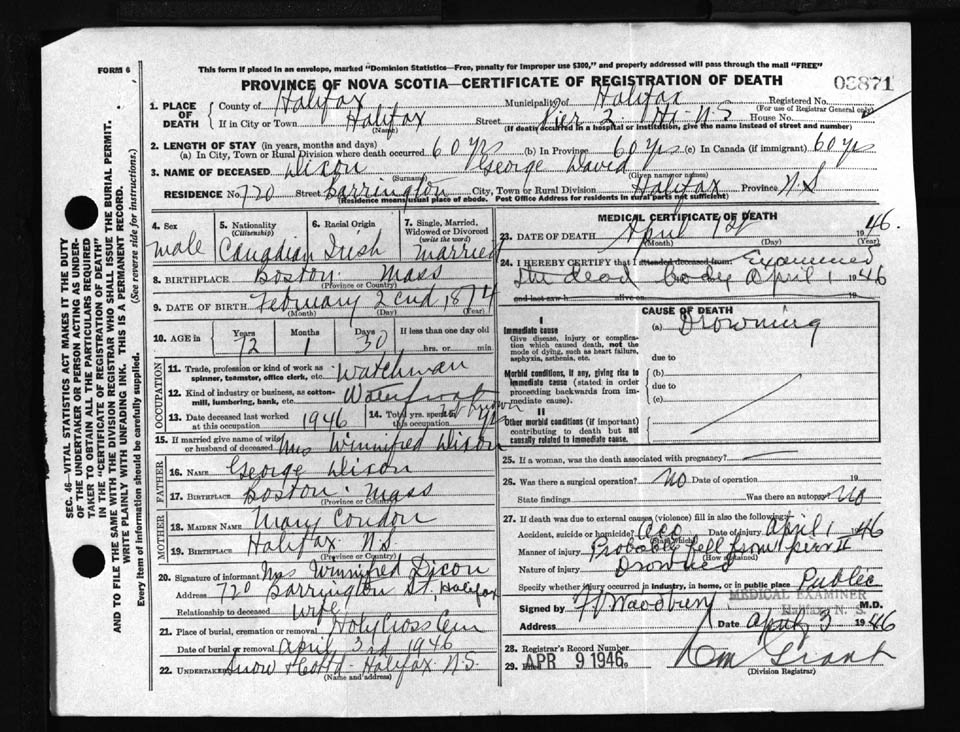 FORM 6
This form if placed in an envelope, marked "Dominion Statistics—Free, penalty for improper use $300," and properly addressed will pass through the mail "FREE"
PROVINCE OF NOVA SCOTIA—CERTIFICATE OF REGISTRATION OF DEATH 03871
1. PLACE OF DEATH County of Halifax Municipality of Halifax Registered No. (For use of Registrar General only)
If in City or Town Halifax (Name) Street Pier 2 Hx NS House No.
(If death occurred in a hospital or institution, give the name instead of street and number)
2. LENGTH OF STAY (in years, months and days)
(a) In City, Town or Rural Division where death occurred 60 yrs (b) In Province 60 yrs (c) In Canada (if immigrant) 60 yrs
3. NAME OF DECEASED Dixon (Surname) George David (Given name or names)
RESIDENCE No. 720 Street Barrington City, Town or Rural Division Halifax Province N.S
(Residence means usual place of abode. Post Office Address for residents in rural parts not sufficient)
4. Sex male
5. Nationality (Citizenship) Canadian
6. Racial Origin Irish
7. Single, Married, Widowed or Divorced (write the word) Married
8. BIRTHPLACE Boston Mass (Province or Country)
9. DATE OF BIRTH February 2cnd 1874 (Month) (Day) (Year)
10. AGE in Years 72 Months 1 Days 30 If less than one day old hrs. or min.
OCCUPATION
11. Trade, profession or kind of work as spinner, teamster, office clerk, etc. Watchman
12. Kind of industry or business, as cotton-mill, lumbering, bank, etc. Waterfront
13. Date deceased last worked at this occupation 1946
14. Total yrs. spent in this occupation yrs
15. If married give name of wife or husband of deceased Mrs Winnifred Dixon
FATHER
16. NAME George Dixon
17. BIRTHPLACE Boston Mass (Province or Country)
MOTHER
18. MAIDEN NAME Mary Condon
19. BIRTHPLACE Halifax N.S. (Province or Country)
20. Signature of informant Mrs Winnifred Dixon
Address 720 Barrington St. Halifax
Relationship to deceased wife
21. Place of burial, cremation or removal Holy Cross Cem
Date of burial or removal April 3rd 1946
22. UNDERTAKER Snow & Co Ltd - Halifax N.S. (Name and address)
MEDICAL CERTIFICATE OF DEATH
23. DATE OF DEATH April 1st 1946. (Month) (Day) (Year)
24. I HEREBY CERTIFY that I attended deceased from Examined
the dead body April 1 1946
and last saw h alive on 19
CAUSE OF DEATH
I
Immediate cause
Give disease, injury or complication which caused death, not the mode of dying, such as heart failure, asphyxia, asthenia, etc.
(a) Drowning
due to
Morbid conditions, if any, giving rise to immediate cause (stated in order proceeding backwards from immediate cause).
(b)
due to
(c)
II
Other morbid conditions (if important) contributing to death but not causally related to immediate cause.
25. If a woman, was the death associated with pregnancy?
26. Was there a surgical operation? No Date of operation 19
State findings Was there an autopsy? No
27. If death was due to external causes (violence) fill in also the following:
Accident, suicide or homicide? Acc (State which) Date of injury April 1 1946
Manner of injury Probable fell from pier II (How sustained)
Nature of injury Drowned
Specify whether injury occurred in industry, in home, or in public place Public
MEDICAL EXAMINER
Halifax, N. S.
Signed by M.D.
Address Date April 3 1946
28. Registrar's Record Number
29. APR 9 1946 Grant (Division Registrar)
SEC. 46—VITAL STATISTICS ACT MAKES IT THE DUTY
OF THE UNDERTAKER OR PERSON ACTING AS UNDER-
TAKER TO OBTAIN ALL THE PARTICULARS REQUIRED
IN THE "CERTIFICATE OF REGISTRATION OF DEATH"
AND TO FILE THE SAME WITH THE DIVISION REGISTRAR WHO SHALL ISSUE THE BURIAL PERMIT.
WRITE PLAINLY WITH UNFADING INK. THIS IS A PERMANENT RECORD.
Every item of information should be carefully supplied. (See reverse side for instructions.)